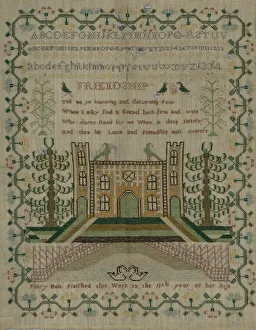 ABCDEFGHIKLMNOPQRSTUV
ABCDEFGHIKLMNOPQRSTUVWXYZ1234
Aabcdefghiklmnopqrstuvwxyz1234
FRIENDSHIP
Tell me ye knowing and discerning Few
Where I may find a Friend both firm and
Who dares stand by me When in deep distress
And then his Love and Friendship most express
Mary finished this Work in the 11th year of her Age